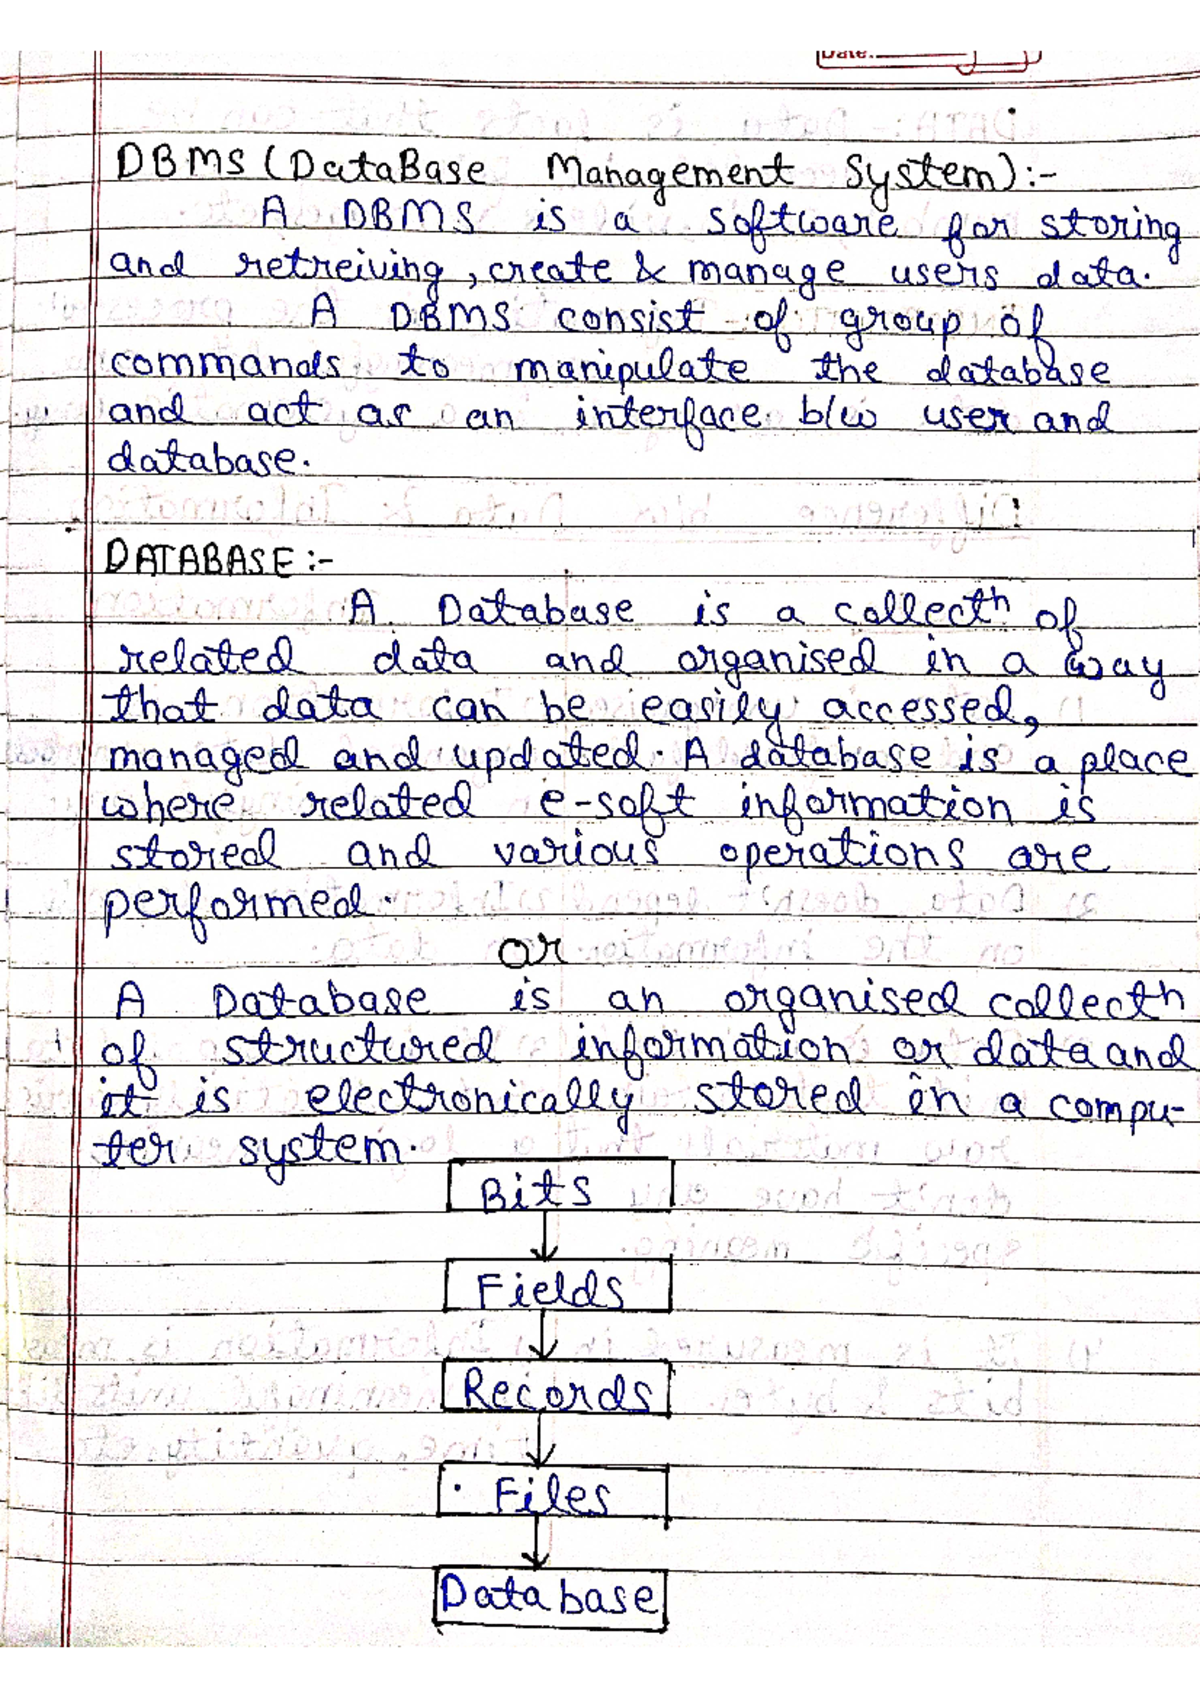 Date.
DBMS (DataBase Management System):-
A DBMS is a software for storing
and retreiving, create & manage users data.
A DBMS consist of group of
commands to manipulate the database
and act as an interface b/w user and
database.
DATABASE:-
A Database is a collectn of
related data and organised in a way
that data can be easily accessed,
managed and updated. A database is a place
where related e-soft information is
stored and various operations are
performed.
or
A Database is an organised collectn
of structured information or data and
it is electronically stored in a compu-
ter system.
Bits
Fields
Records
Files
Database